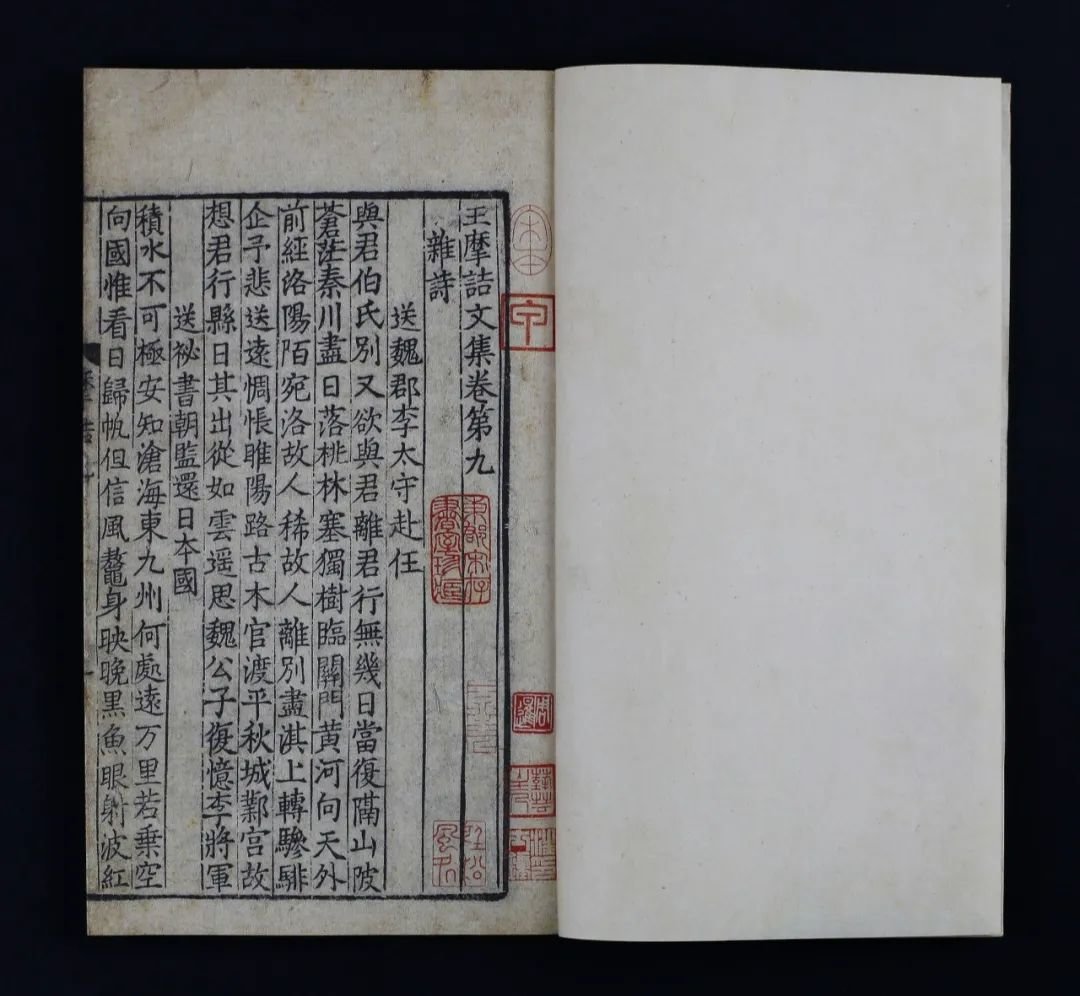 王摩詰文集卷第九
雜詩
送魏郡李太守赴任
與君伯氏別又欲與君離君行無幾日當復隔山陂
蒼茫秦川盡日落桃林塞獨樹臨關門黄河向天外
前經洛陽陌宛洛故人稀故人離別盡淇上轉驂騑
企予悲送遠惆悵睢陽路古木官渡平秋城鄴宫故
想君行縣日其出從如雲遥思魏公子復憶李將軍
送祕書朝監還日本國
積水不可極安知滄海東九州何處遠万里若乗空
向國惟看日歸帆但信風鼇身映晚黒魚眼射波紅
東郡宋存
書室珍藏
周暹